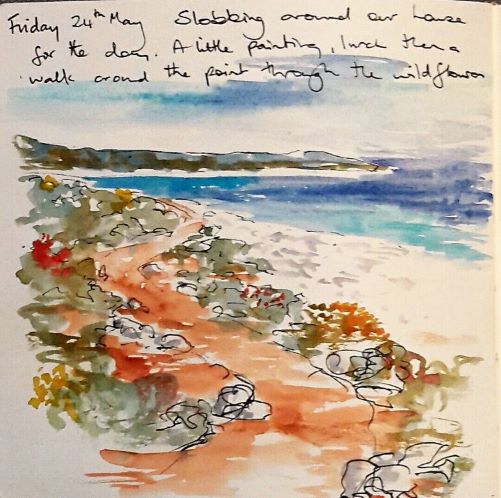 Friday 24th May Slobbing around our house
for the day. A little painting, lunch then a
walk around the point through the wildflowers